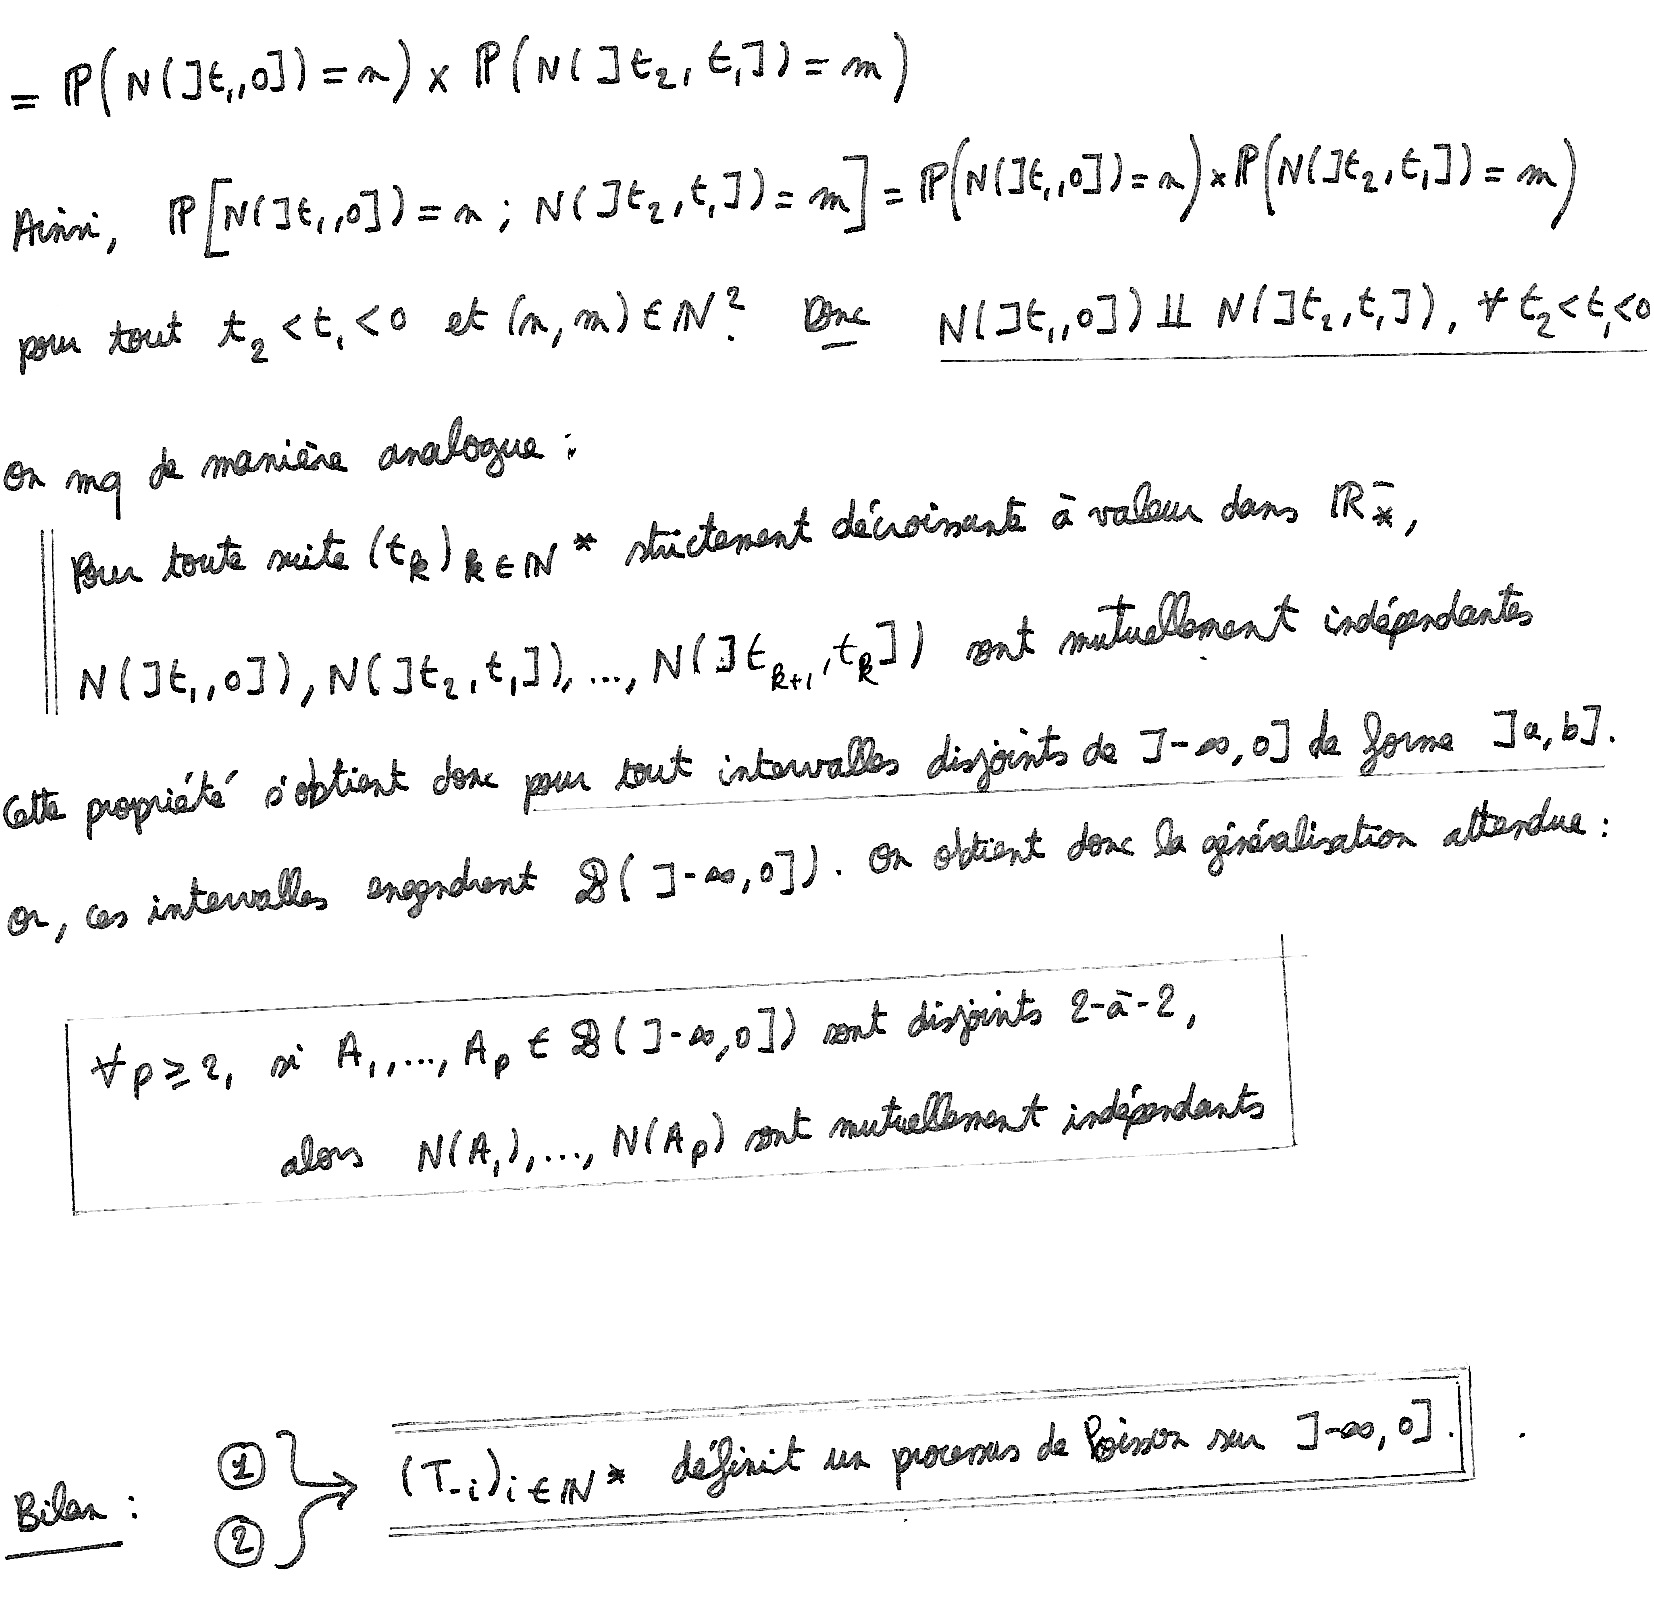 = ℙ(N(]t₁,0]) = n) × ℙ(N(]t₂, t₁]) = m)
Ainsi, ℙ[N(]t₁,0]) = n ; N(]t₂,t₁]) = m] = ℙ(N(]t₁,0]) = n) × ℙ(N(]t₂,t₁]) = m)
pour tout t₂ < t₁ < 0 et (n, m) ∈ ℕ². Donc N(]t₁,0]) ⫫ N(]t₂,t₁]), ∀ t₂<t₁<0
On mq de manière analogue :
Pour toute suite (t_k)_{k ∈ ℕ*} strictement décroissante à valeur dans ℝ₋*,
N(]t₁,0]), N(]t₂,t₁]), ..., N(]t_{k+1},t_k]) sont mutuellement indépendantes
Cette propriété s'obtient donc pour tout intervalles disjoints de ]-∞,0] de forme ]a,b].
Or, ces intervalles engendrent ℬ(]-∞,0]). On obtient donc la généralisation attendue :
∀p ≥ 2, si A₁,..., A_p ∈ ℬ(]-∞,0]) sont disjoints 2-à-2,
alors N(A₁),..., N(A_p) sont mutuellement indépendants
①
(T_{-i})_{i ∈ ℕ*} définit un processus de Poisson sur ]-∞,0].
Bilan :
②